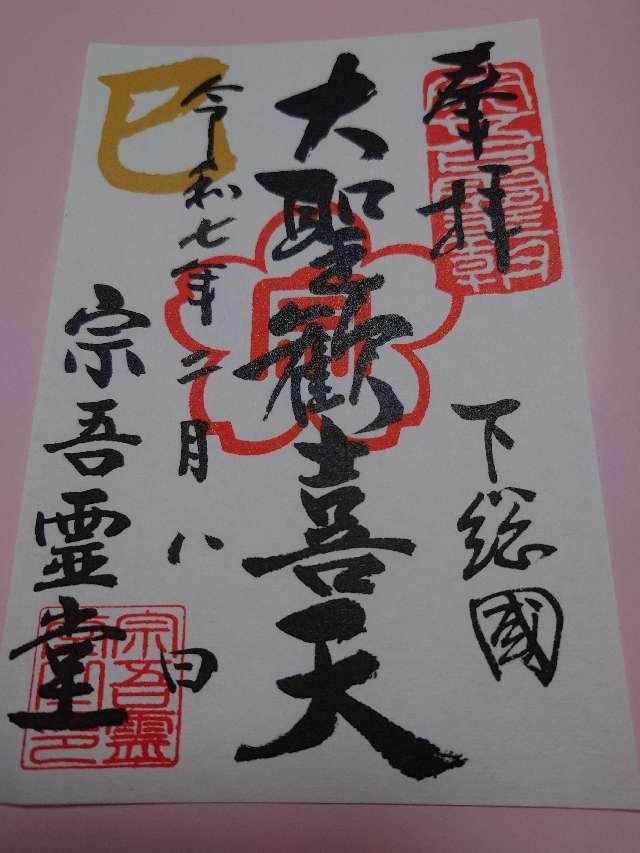 奉拝
下総國
大聖歓喜天
令和七年二月八日
巳
宗吾霊堂